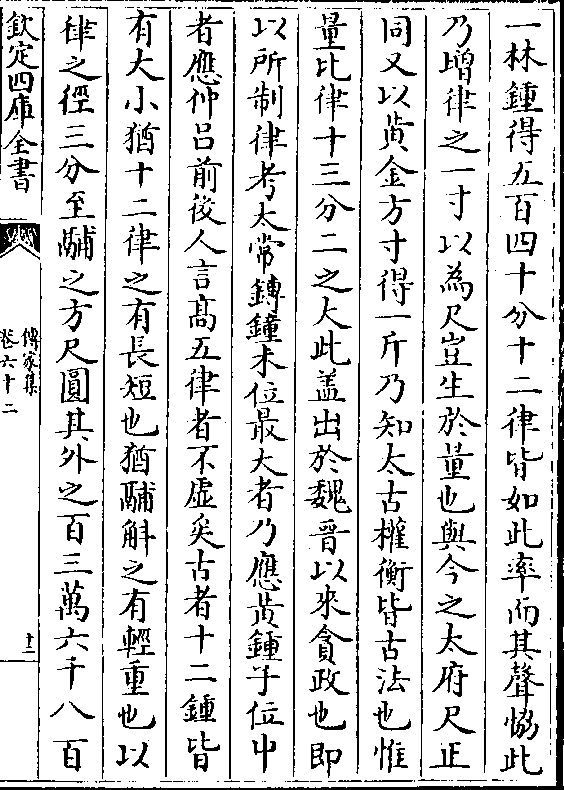 一林鍾得五百四十分十二律皆如此率而其聲恊此
乃增律之一寸以為尺豈生於量也與今之太府尺正
同又以黄金方寸得一斤乃知太古權衡皆古法也惟
量比律十三分二之大此盖出於魏晉以來貪政也即
以所制律考太常鏄鐘未位最大者乃應黄鍾子位中
者應仲吕前後人言髙五律者不虚矣古者十二鍾皆
有大小猶十二律之有長短也猶鬴斛之有輕重也以
律之徑三分至鬴之方尺圓其外之百三萬六千八百
欽定四庫全書
傳家集
卷六十二
十三